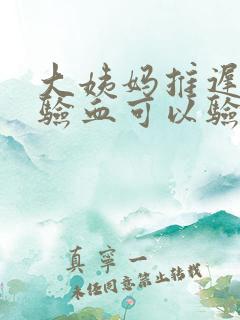 大姨妈推迟
验血可以验
真寧一
未经同意禁止转载